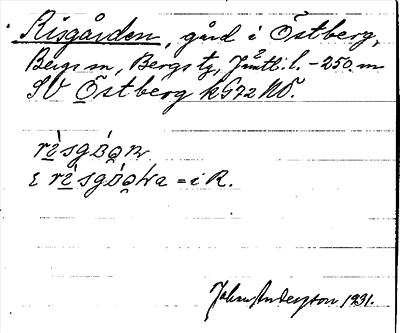 Risgården, gård i Östberg,
Bergs sn, Bergs tg, Jämtl. l. - 250 m
SV Östberg kG72NÖ.
rìsgɷ̀ąn
ε rìsgɷ̀ąɴa = i R.
Johan Anderzson 1931.